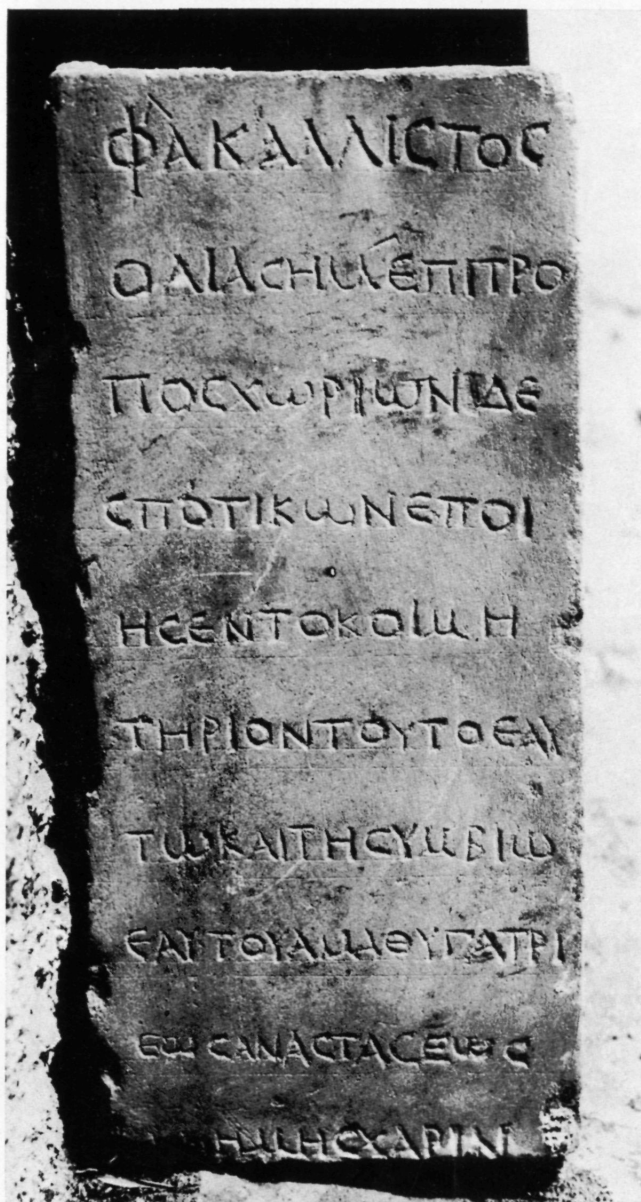 ΦΛΚΑΛΛΙCΤΟC
ΟΔΙΑCΗΜΕΠΙΤΡΟ
ΠΟCΧΩΡΙΩΝΔΕ
CΠΟΤΙΚΩΝΕΠΟΙ
ΗCΕΝΤΟΚΟΙΜΗ
ΤΗΡΙΟΝΤΟΥΤΟΕΑΥ
ΤΩΚΑΙΤΗCΥΜΒΙΩ
ΕΑΥΤΟΥΑΜΑΘΥΓΑΤΡΙ
ΕΩCΑΝΑCΤΑCΕΩC
ΜΗΜΗCΧΑΡΙΝ